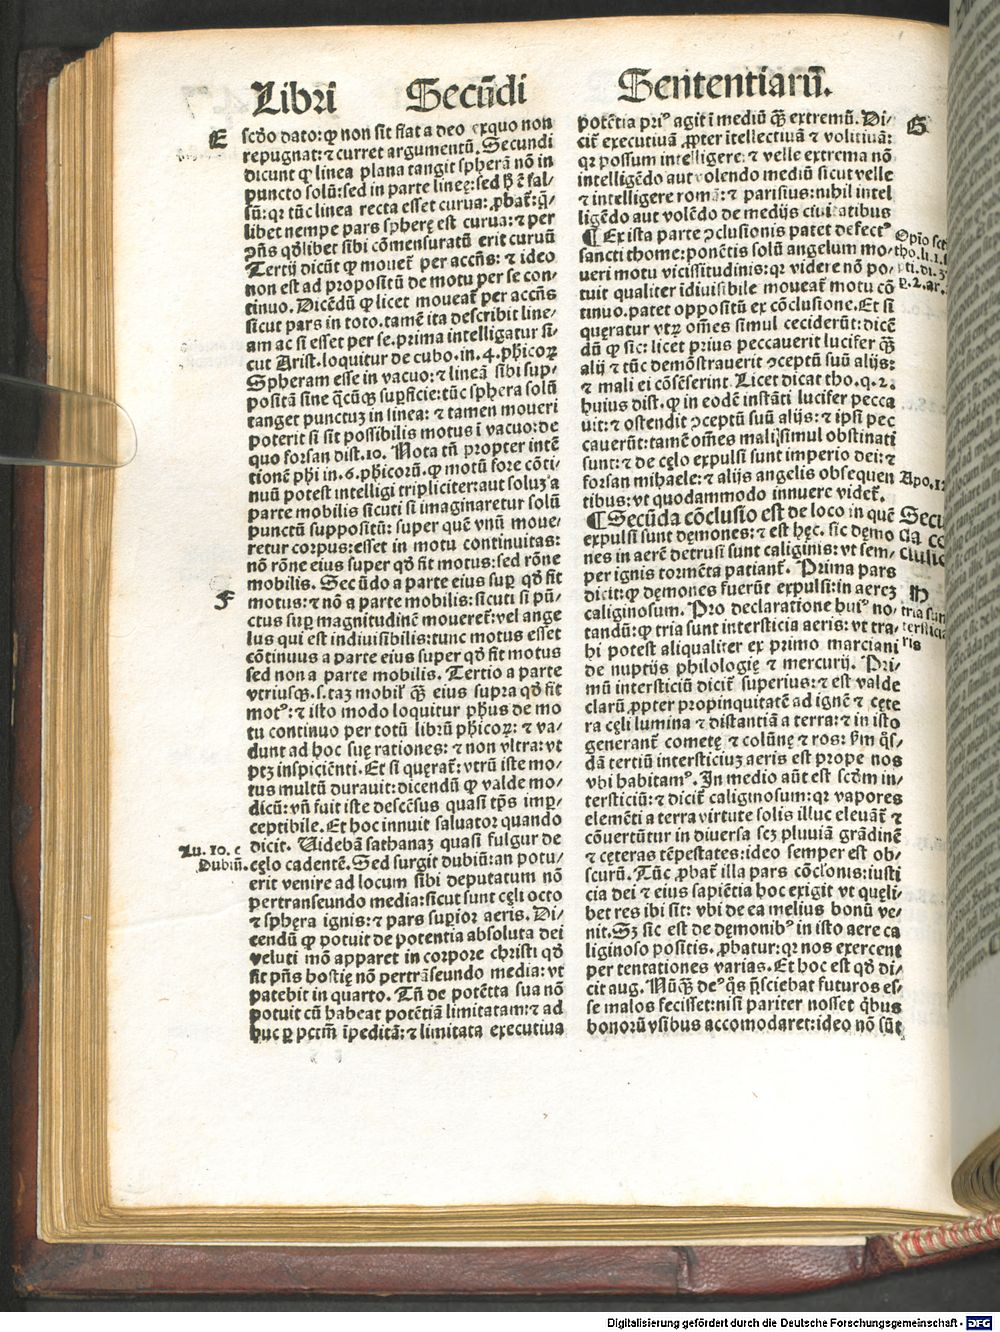 Libri Secūdi Sententiarū.
E
scd̄o dato: qꝫ non sit fiat a deo exquo non
repugnat: ⁊ curret argumentū. Secundi
dicunt ꝙ linea plana tangit spherā nō in
puncto solū: sed in parte lineę: sed h̄ ē fal⸗
sū: qꝛ tūc linea recta esset curua: ꝓbat̄: q̄⸗
libet nempe pars spherę est curua: ⁊ per
ꝯn̄s qd̄libet sibi cōmensuratū erit curuū
Tertij dicūt ꝙ mouet̄ per accn̄s: ⁊ ideo
non est ad propositū de motu per se con⸗
tinuo. Dicēdū ꝙ licet moueat̄ per accn̄s
sicut pars in toto. tamē ita describit line⸗
am ac si esset per se. prima intelligatur si⸗
cut Arist. loquitur de cubo. in. 4. ph̄icoꝝ
Spheram esse in vacuo: ⁊ lineā sibi sup⸗
positā sine q̄cūqꝫ suꝑficie: tūc sphera solū
tanget punctuꝫ in linea: ⁊ tamen moueri
poterit si sit possibilis motus ī vacuo: de
quo forsan dist. 10. Nota tn̄ propter intē
tionē ph̄i in. 6. ph̄icorū. ꝙ motū fore cōti⸗
nuū potest intelligi tripliciter: aut soluꝫ a
parte mobilis sicuti si imaginaretur solū
punctū suppositū: super quē vnū moue⸗
retur corpus: esset in motu continuitas:
nō rōne eius super qd̄ fit motus: sed rōne
mobilis. Secūdo a parte eius suꝑ qd̄ fit
F
motus: ⁊ nō a parte mobilis: sicuti si pū⸗
ctus suꝑ magnitudinē moueret̄: vel ange
lus qui est indiuisibilis: tunc motus esset
cōtinuus a parte eius super qd̄ fit motus
sed non a parte mobilis. Tertio a parte
vtriusqꝫ. s. taꝫ mobil̄ q̄ꝫ eius supra qd̄ fit
motꝰ: ⁊ isto modo loquitur ph̄us de mo
tu continuo per totū librū ph̄icoꝝ: ⁊ va⸗
dunt ad hoc suę rationes: ⁊ non vltra: vt
ptꝫ inspiciēnti. Et si quęrat̄: vtrū iste mo⸗
tus multū durauit: dicendū ꝙ valde mo⸗
dicū: vn̄ fuit iste descēsus quasi tp̄s imꝑ⸗
ceptibile. Et hoc innuit saluator quando
Lu. 10. c
dicit. Videbā sathanaꝫ quasi fulgur de
Dubiū.
cęlo cadentē. Sed surgit dubiū: an potu⸗
erit venire ad locum sibi deputatum nō
pertranseundo media: sicut sunt cęli octo
⁊ sphęra ignis: ⁊ pars suꝑior aeris. Di⸗
cendū ꝙ potuit de potentia absoluta dei
veluti mō apparet in corpore christi qd̄
fit pn̄s hostię nō pertrāseundo media: vt
patebit in quarto. Tn̄ de potētta sua nō
potuit cū habeat potētiā limitatam: ⁊ ad
huc ꝑ pctm̄ īpeditā: ⁊ limitata executiua
potētia priꝰ agit ī mediū q̄ꝫ extremū. Di⸗
G
cit̄ executiuā ꝓpter ītellectiuā ⁊ volitiuā:
qꝛ possum intelligere: ⁊ velle extrema nō
intelligēdo aut volendo mediū sicut velle
⁊ intelligere romā: ⁊ parisius: nihil intel
ligēdo aut volēdo de medijs ciuitatibus
¶ Ex ista parte ꝯclusionis patet defectꝰ
sancti thome: ponētis solū angelum mo⸗
ueri motu vicissitudinis: qꝛ videre nō po⸗
tuit qualiter īdiuisibile moueat̄ motu cō
tinuo. patet oppositū ex cōclusione. Et si
quęratur vtꝝ om̄es simul ceciderūt: dicē
dū ꝙ sic: licet prius peccauerit lucifer q̄ꝫ
alij ⁊ tūc demōstrauerit ꝯceptū suū alijs:
⁊ mali ei cōsēserint. Licet dicat tho. q. 2.
huius dist. ꝙ in eodē instāti lucifer pecca
uit: ⁊ ostendit ꝯceptū suū alijs: ⁊ ipsi pec
cauerūt: tamē om̄es mali simul obstinati
sunt: ⁊ de cęlo expulsi sunt imperio dei: ⁊
forsan mihaele: ⁊ alijs angelis obsequen
Apo. 12
tibus: vt quodammodo innuere videt̄.
¶ Secūda cōclusio est de loco in quē
expulsi sunt dęmones: ⁊ est hęc. sic dęmo
nes in aerē detrusi sunt caliginis: vt sem⸗
per ignis tormēta patiant̄. Prima pars
dicit: ꝙ dęmones fuerūt expulsi: in aereꝫ
H
caliginosum. Pro declaratione huiꝰ no⸗
tandū: ꝙ tria sunt intersticia aeris: vt tra⸗
hi potest aliqualiter ex primo marciani
de nuptijs philologię ⁊ mercurij. Pri⸗
mū intersticiū dicit̄ superius: ⁊ est valde
clarū ꝓpter propinquitatē ad ignē ⁊ cęte
ra cęli lumina ⁊ distantiā a terra: ⁊ in isto
generant̄ cometę ⁊ colūnę ⁊ ros: ẜm q̄s⸗
dā tertiū intersticiuꝫ aeris est prope nos
vbi habitamꝰ. In medio aūt est scd̄m in⸗
tersticiū: ⁊ dicit̄ caliginosum: qꝛ vapores
elemēti a terra virtute solis illuc eleuāt̄ ⁊
cōuertūtur in diuersa scꝫ pluuiā grādinē
⁊ cęteras tēpestates: ideo semper est ob⸗
scurū. Tūc ꝓbat̄ illa pars cōclōnis: iusti
cia dei ⁊ eius sapiētia hoc exigit vt quęli⸗
bet res ibi sit: vbi de ea melius bonū ve⸗
nit. Sꝫ sic est de dęmonibꝰ in isto aere ca
liginoso positis. ꝓbatur: qꝛ nos exercent
per tentationes varias. Et hoc est qd̄ di⸗
cit aug. Nūq̄ꝫ deꝰ q̄s p̄sciebat futuros es⸗
se malos fecisset: nisi pariter nosset q̄bus
bonorū vsibus accomodaret: ideo nō sūt